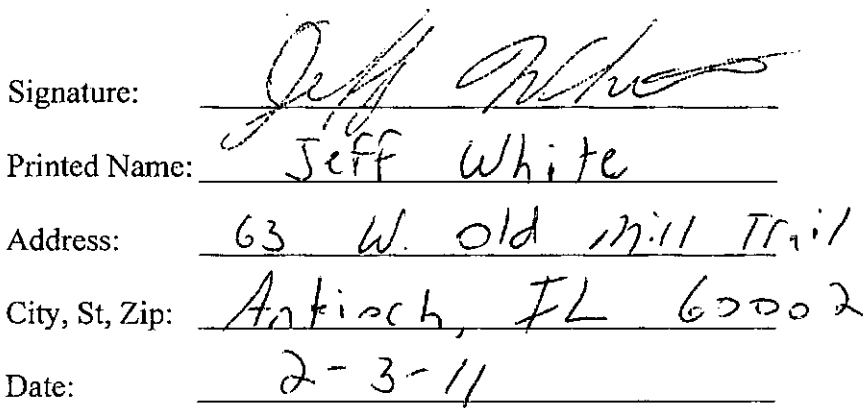 Signature: Jeff White
Printed Name: Jeff White
Address: 63 W. Old Mill Trail
City, St, Zip: Antioch, IL 60002
Date: 2-3-11